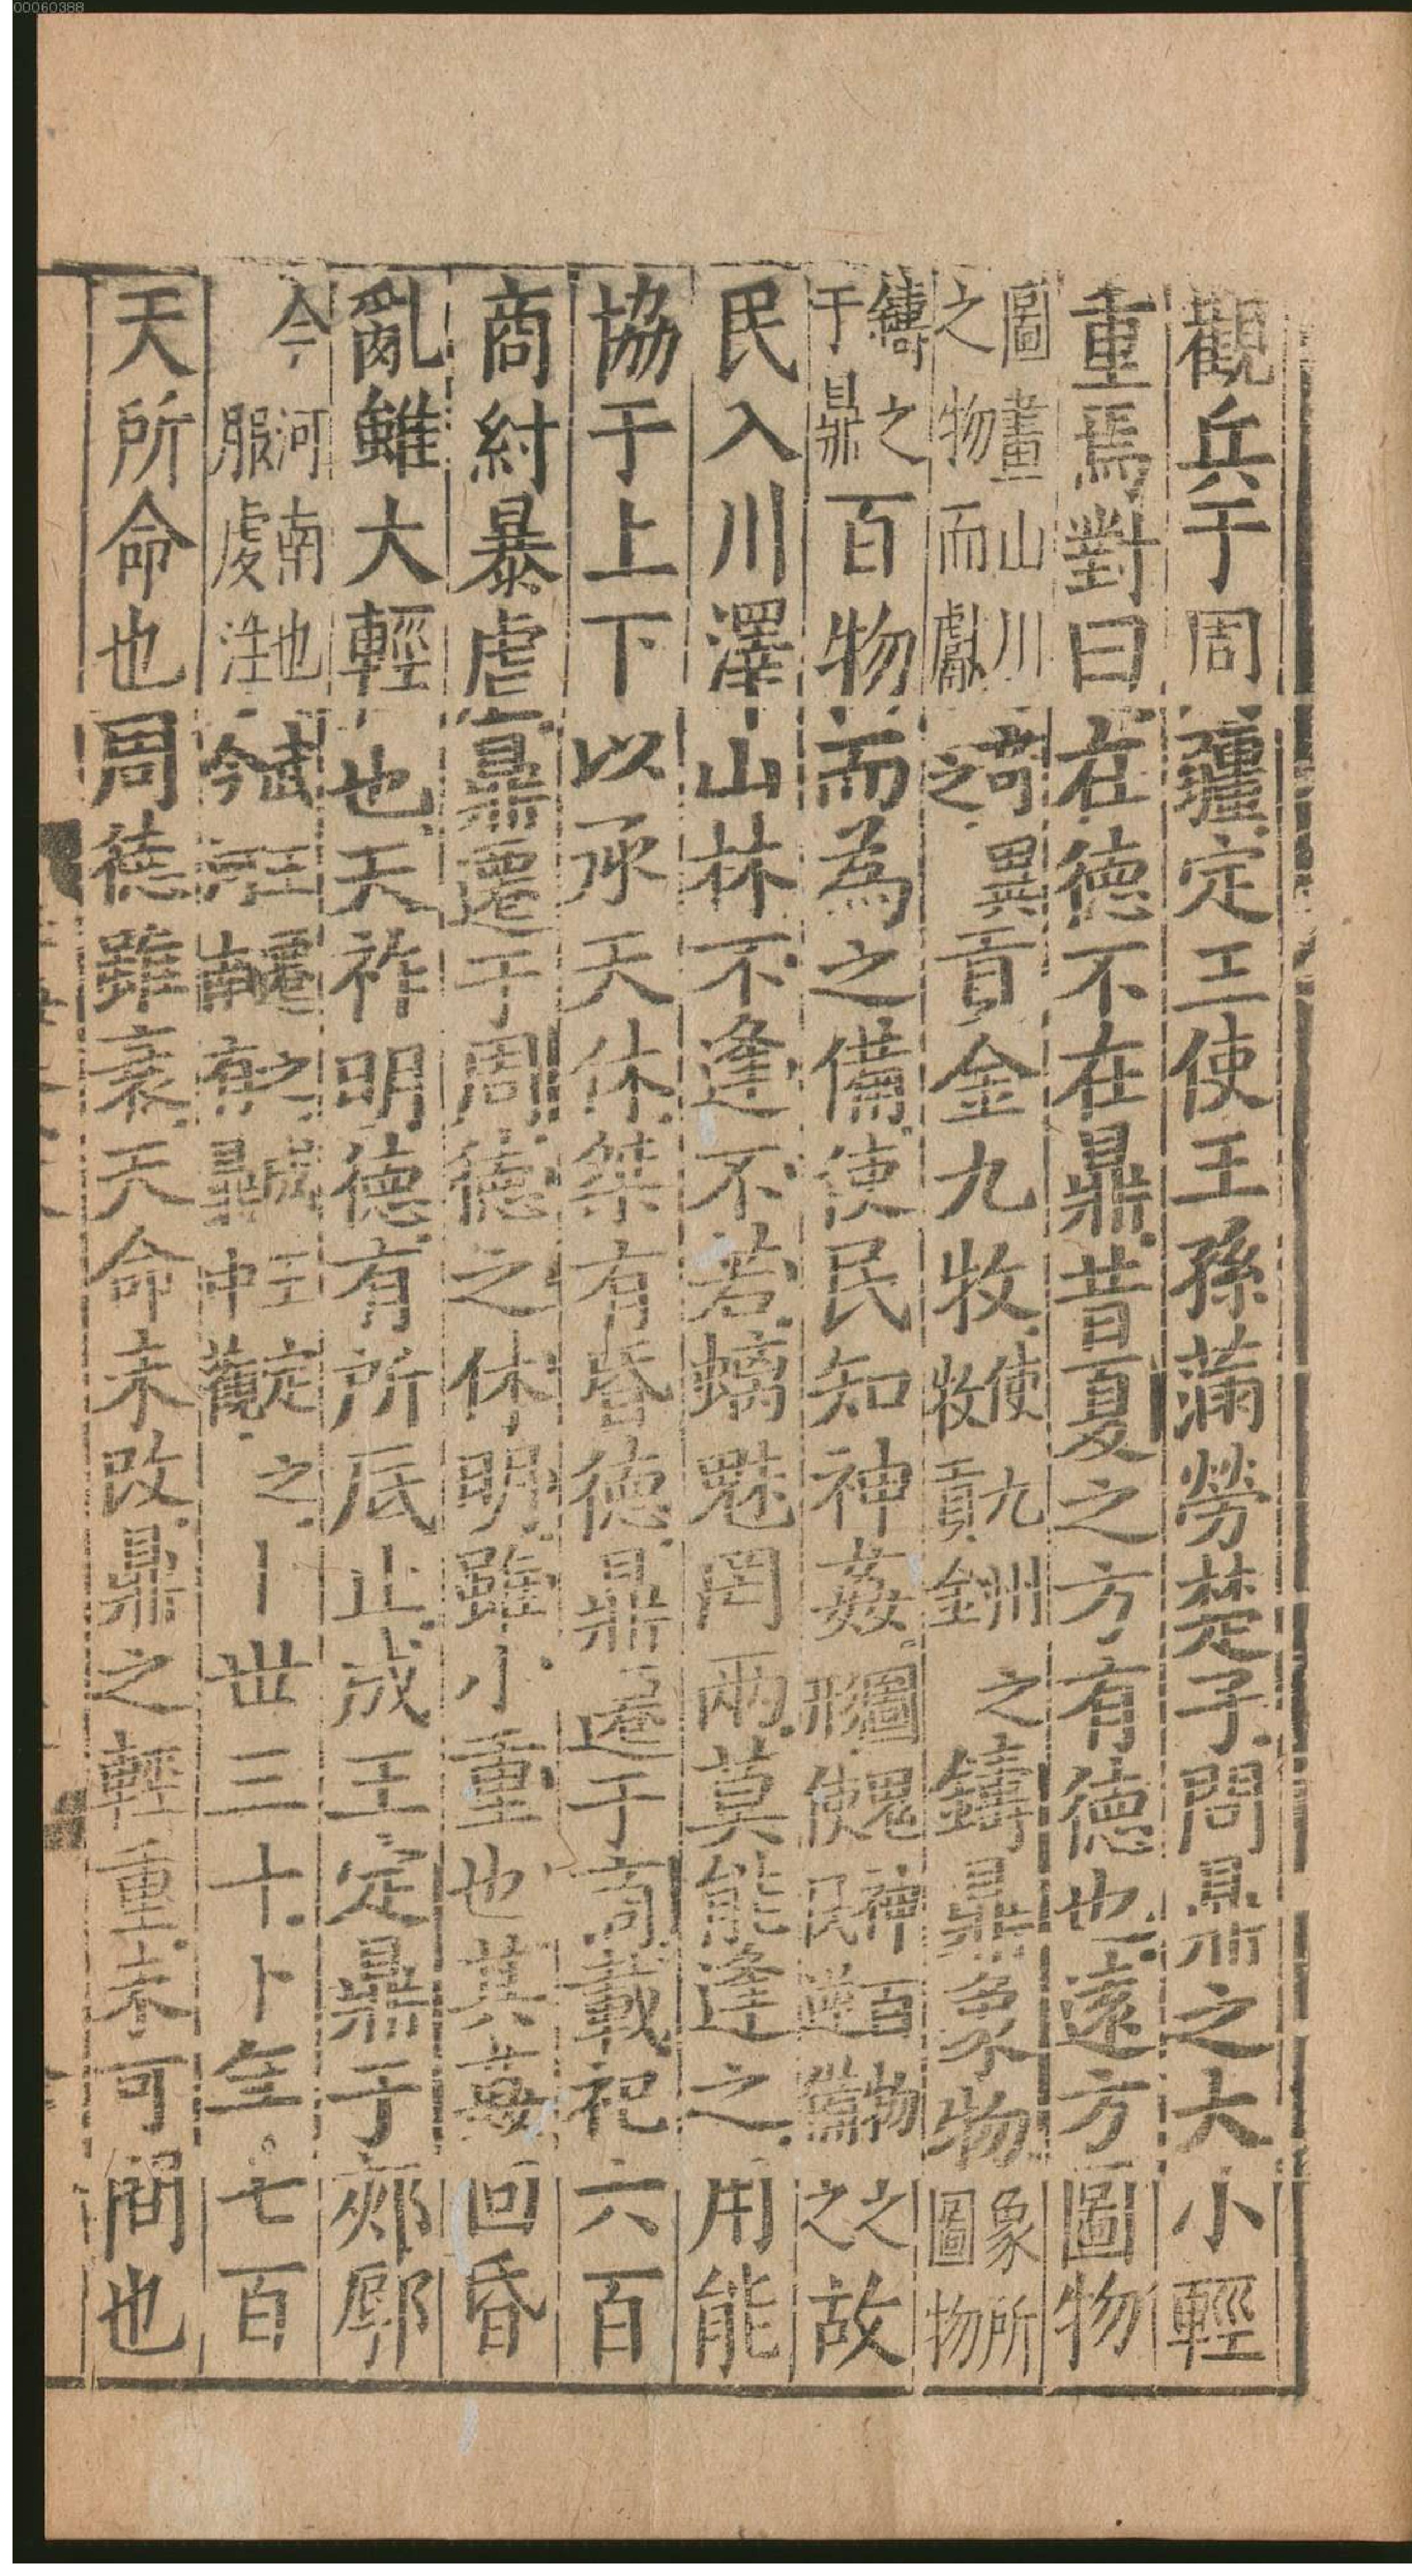 00060388
觀兵于周疆定王使王孫蒲勞楚子問鼎之大小輕
重焉對曰在德不在鼎昔夏之方有德也遠方圖物
圖畫山川奇異
之物而獻之
貢金九牧
使九州之
牧貢金
鑄鼎象物
象所圖物
鑄之
于鼎
百物而為之備使民知神姦
圖鬼神百物之
形使民逆備之
故
民入川澤山林不逢不若螭魅罔兩莫能逢之用能
協于上下以承天休桀有昏德鼎遷于商載祀六百
商紂暴虐鼎遷于周德之休明雖小重也其姦回昏
亂雖大輕也天祚明德有所底止成王定鼎于郟鄏
今河南也武王遷之成王定之
服虔注今河南有鼎中觀
卜世三十卜年七百
天所命也周德雖衰天命未改鼎之輕重未可問也